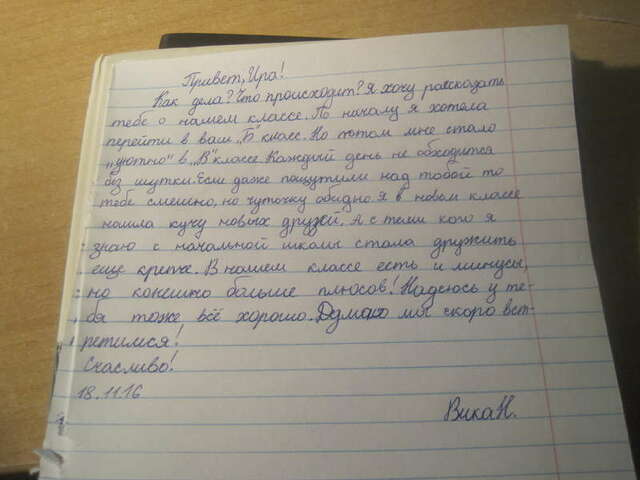 Привет, Ира!
Как дела? Что происходит? Я хочу рассказать
тебе о нашем классе. По началу я хотела
перейти в ваш „Б" класс. Но потом мне стало
„уютно" в „В" классе. Каждый день не обходится
без шутки. Если даже пошутили над тобой то
тебе смешно, но чуточку обидно. Я в новом классе
нашла кучу новых друзей. А с теми кого я
знаю с начальной школы стала дружить
еще крепче. В нашем классе есть и минусы,
но конешно больше плюсов! Надеюсь у те-
бя тоже всё хорошо. Думаю мы скоро вст-
ретимся!
Счасливо!
18.11.16
Вика Н.